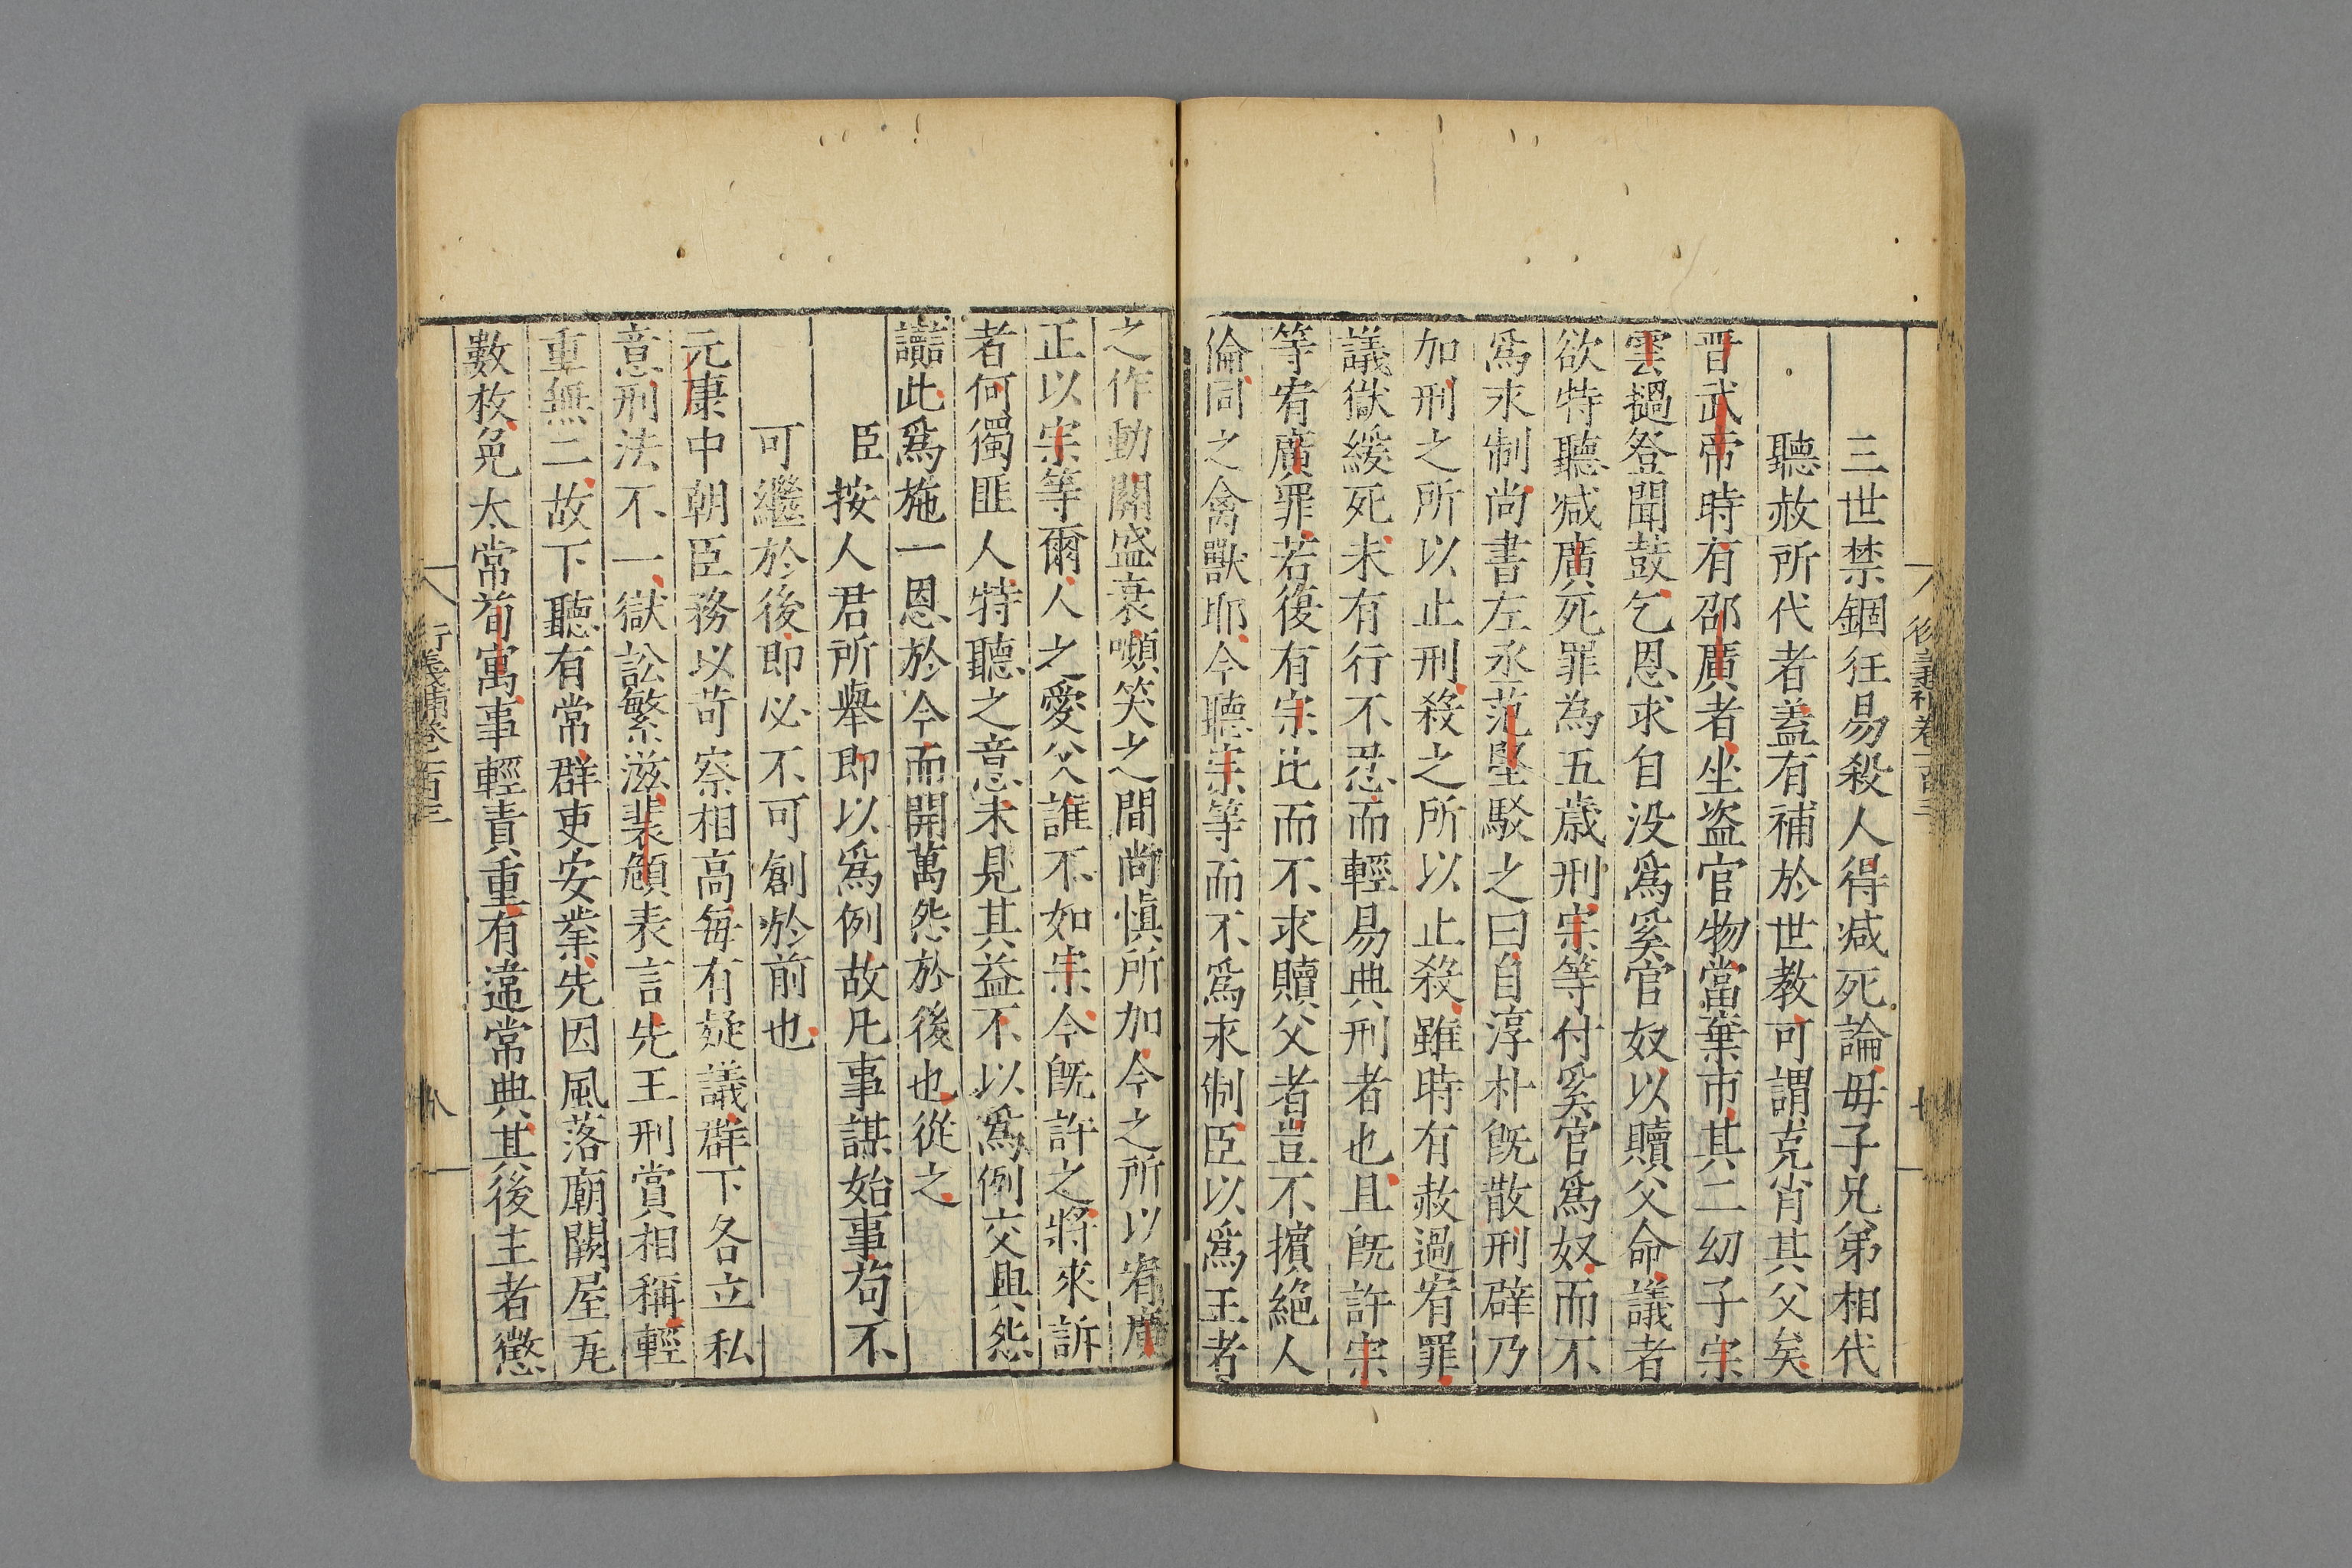 三世禁錮狂易殺人得减死論毋子兄弟相代
聽赦所代者蓋有補於世教可謂克肖其父矣
晋武帝時有邵廣者坐盗官物當棄市其二㓜子宗
雲撾登聞鼓乞恩求自没爲奚官奴以贖父命議者
欲特聽减廣死罪為五歲刑宗等付奚官爲奴而不
爲永制尚書左丞范堅駁之曰自淳朴旣散刑辟乃
加刑之所以止刑殺之所以止殺雖時有赦過宥罪
議獄緩死未有行不忍而輕易典刑者也且旣許宗
等宥廣罪若復有宗比而不求贖父者豈不擯絶人
倫同之禽獸耶今聽宗等而不爲永制臣以爲王者
之作動關盛衰嚬笑之間尚慎所加今之所以宥廣
正以宗等爾人之愛父誰不如宗今旣許之將來訴
者何獨匪人特聽之意未見其益不以爲例交興怨
讟此爲施一恩於今而開萬怨於後也從之
臣按人君所舉即以爲例故凡事謀始事茍不
可繼於後即必不可創於前也
元康中朝臣務以苛察相高每有疑議群下各立私
意刑法不一獄訟繁滋裴頠表言先王刑賞相稱輕
重無二故下聽有常群吏安業先因風落廟闕屋瓦
數枚免太常荀寓事輕責重有違常典其後主者懲
衍義補卷一百三
八